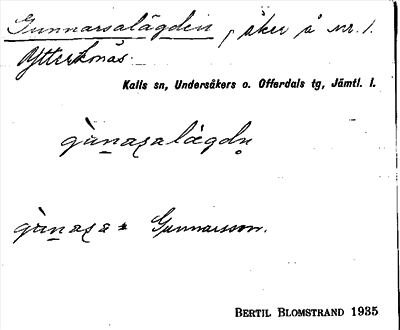 Gunnarsalägden, åker å nr. 1.
Ytterknäs.
Kalls sn, Undersåkers o. Offerdals tg, Jämtl. l.
gùnaṣalägdn̥
gùnaṣa = Gunnarsson.
BERTIL BLOMSTRAND 1935